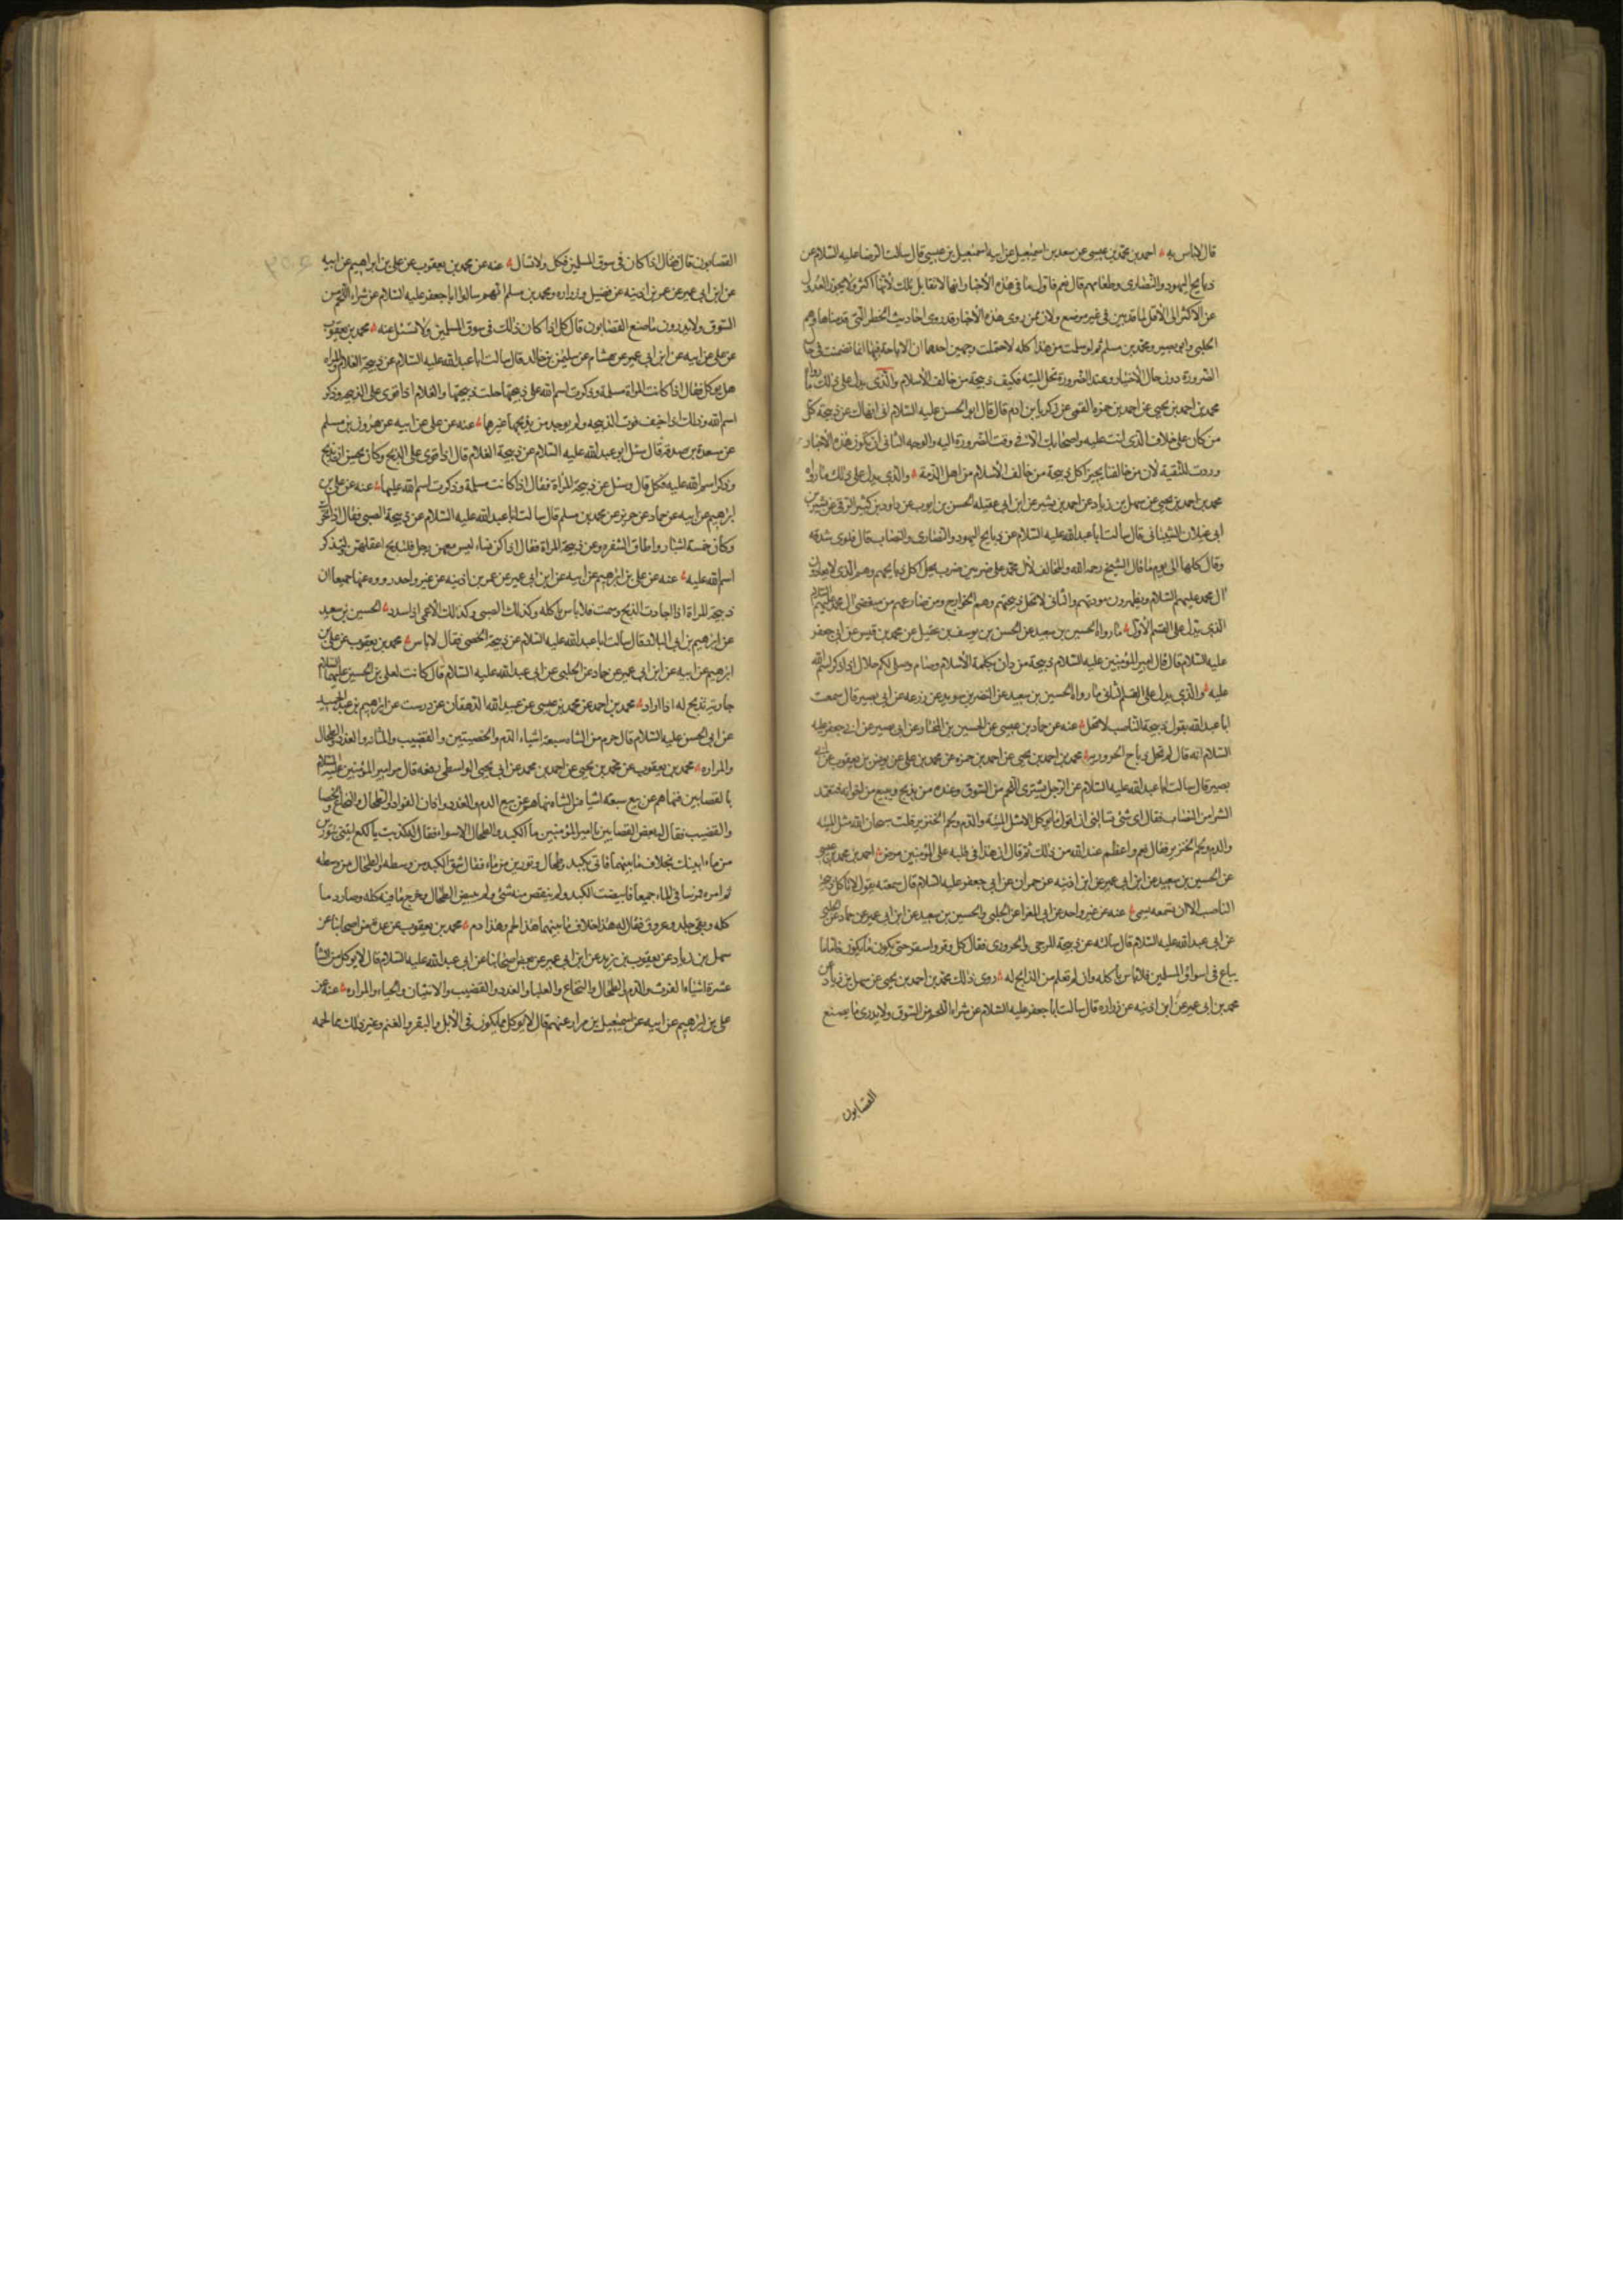 قال لا باس به احمد بن محمد بن عيسى عن سعد بن اسمعيل عن ابيه اسمعيل بن عيسى قال سالت الرضا عليه السلام عن
ذبايح اليهود والنصارى وطعامهم قال نعم فاول ما في هذه الاخبار انها لا تقابل تلك لانها اكثر ولا يجوز العدول
عن الاكثر الى الاقل لما قد بين في غير موضع ولان ممن روى هذه الاخبار قد روى احاديث الحظر التي قدمناها وهم
الحلبي وابو بصير ومحمد بن مسلم ثم لو سلمت من هذا كله لاحتملت وجهين احدهما ان الاباحة فيها انما تضمنت في حال
الضرورة دون حال الاختيار وعند الضرورة تحل الميتة فكيف ذبيحة من خالف الاسلام والذي يدل على ذلك ما رواه
محمد بن احمد بن يحيى عن احمد بن حمزه القمي عن زكريا بن ادم قال قال ابو الحسن عليه السلام اني انهاك عن ذبيحة كل
من كان على خلاف الذي انت عليه واصحابك الا في وقت الضرورة اليه والوجه الثاني ان يكون هذه الاخبار
وردت للتقية لان من خالفنا يجيز اكل ذبيحة من خالف الاسلام من اهل الذمة والذي يدل على ذلك ما رواه
محمد بن احمد بن يحيى عن سهل بن زياد عن احمد بن بشير عن ابن ابي عقيله الحسن بن ايوب عن داود بن كثير الرقي عن بشير بن
ابي غيلان الشيباني قال سالت ابا عبد الله عليه السلام عن ذبايح اليهود والنصارى والنصاب قال فلوى شدقه
وقال كلها الى يوم ما قال الشيخ رحمه الله والمخالف لال محمد على ضربين ضرب يحل اكل ذبايحهم وهم الذي لا يعادون
ال محمد عليهم السلام ويظهرون مودتهم والثاني لا تحل ذبيحتهم وهم الخوارج ومن ضارعهم من مبغضي ال محمد عليهم السلام
الذي يدل على القسم الاول ما رواه الحسين بن سعيد عن الحسن بن يوسف بن عقيل عن محمد بن قيس عن ابي جعفر
عليه السلام قال قال امير المؤمنين عليه السلام ذبيحة من دان بكلمة الاسلام وصام وصلى لكم حلال اذا ذكر اسم الله
عليه والذي يدل على القسم الثاني ما رواه الحسين بن سعيد عن النضر بن سويد عن زرعه عن ابي بصير قال سمعت
ابا عبد الله يقول ذبيحة الناصب لا تحل عنه عن حماد بن عيسى عن الحسين بن المختار عن ابي بصير عن ابي جعفر عليه
السلام انه قال لم تحل ذبايح الحرورية محمد بن احمد بن يحيى عن احمد بن حمزه عن محمد بن علي عن يونس بن يعقوب عن ابي
بصير قال سالت ابا عبد الله عليه السلام عن الرجل يشترى اللحم من السوق وعنده من يذبح ويبيع من اخوانه فيتعمد
الشرا من النصاب فقال اي شئ تسالني ان اقول ما ياكل الا مثل الميتة والدم ولحم الخنزير قلت سبحان الله مثل الميتة
والدم ولحم الخنزير فقال نعم واعظم عند الله من ذلك ثم قال ان هذا في قلبه على المؤمنين مرض احمد بن محمد بن عيسى
عن الحسين بن سعيد عن ابن ابي عمير عن ابن اذينه عن حمران عن ابي جعفر عليه السلام قال سمعته يقول لا تاكل ذبيحة
الناصب الا ان تسمعه يسمي عنه عن غير واحد عن ابي المغرا عن الحلبي والحسين بن سعيد عن ابن ابي عمير عن حماد عن الحلبي
عن ابي عبد الله عليه السلام قال سالته عن ذبيحة المرجى والحروري فقال كل وقر واستقر حتى يكون ما يكون فاما ما
يباع في اسواق المسلمين فلا باس باكله وان لم تعلم من الذابح له روى ذلك محمد بن احمد بن يحيى عن سهل بن زياد عن
محمد بن ابي عمير عن ابن اذينه عن زراره قال سالت ابا جعفر عليه السلام عن شراء اللحم من السوق ولا يدرى ما يصنع
القصابون
القصابون قال فقال اذا كان في سوق المسلمين فكل ولا تسال عنه عن محمد بن يعقوب عن علي بن ابراهيم عن ابيه
عن ابن ابي عمير عن عمر بن اذينه عن فضيل وزراره ومحمد بن مسلم انهم سالوا ابا جعفر عليه السلام عن شراء اللحم من
السوق ولا يدرون ما صنع القصابون قال كل اذا كان ذلك في سوق المسلمين ولا تسئل عنه محمد بن يعقوب
عن علي عن ابيه عن ابن ابي عمير عن هشام عن سليمن بن خالد قال سالت ابا عبد الله عليه السلام عن ذبيحة الغلام والمراه
هل يوكل فقال اذا كانت المراة مسلمة وذكرت اسم الله على ذبيحتها حلت ذبيحتها والغلام اذا قوى على الذبيحه وذكر
اسم الله وذلك اذا خيف فوت الذبيحه ولم يوجد من يذبحها غيرها عنه عن علي عن ابيه عن هرون بن مسلم
عن مسعدة بن صدقة قال سئل ابو عبد الله عليه السلام عن ذبيحة الغلام قال اذا قوى على الذبح وكان يحسن ان يذبح
وذكر اسم الله عليه فكل قال وسئل عن ذبيحة المراة فقال اذا كانت مسلمة وذكرت اسم الله عليها عنه عن علي بن
ابرهيم عن ابيه عن حماد عن حريز عن محمد بن مسلم قال سالت ابا عبد الله عليه السلام عن ذبيحة الصبي فقال اذا تحرك
وكان خمسة اشبار واطاق الشفره وعن ذبيحة المراة فقال اذا كن نساء ليس معهن رجل فلتذبح اعقلهن ولتذكر
اسم الله عليه عنه عن علي بن ابرهيم عن ابيه عن ابن ابي عمير عن عمر بن اذينه عن غير واحد رووه عنهما جميعا ان
ذبيحة المراة اذا اجادت الذبح وسمت فلا باس باكله وكذلك الصبي وكذلك الاعمى اذا سدد الحسين بن سعيد
عن ابرهيم بن ابي البلاد قال سالت ابا عبد الله عليه السلام عن ذبيحة الخصي فقال لا باس محمد بن يعقوب عن علي بن
ابرهيم عن ابيه عن ابن ابي عمير عن حماد عن الحلبي عن ابي عبد الله عليه السلام قال كانت لعلي بن الحسين عليهما السلام
جارية تذبح له اذا اراد محمد بن احمد عن محمد بن عيسى عن عبيد الله الدهقان عن درست عن ابرهيم بن عبد الحميد
عن ابي الحسن عليه السلام قال حرم من الشاه سبعة اشياء الدم والخصيتين والقضيب والمثانه والغدد والطحال
والمراره محمد بن يعقوب عن محمد بن يحيى عن احمد بن محمد عن ابي يحيى الواسطي رفعه قال مر امير المؤمنين عليه السلام
بالقصابين فنهاهم عن بيع سبعه اشيا من الشاه نهاهم عن بيع الدم والغدد واذان الفواد والطحال والنخاع والخصا
والقضيب فقال له بعض القصابين يا امير المؤمنين ما الكبد والطحال الا سواء فقال له كذبت يا لكع ايتني بتورين
من ماء انبئك بخلاف ما بينهما فاتى بكبد وطحال وتورين من ماء فقال شق الكبد من وسطه والطحال من وسطه
ثم امر به فمرسا في الماء جميعا فابيضت الكبد ولم ينقص منه شئ ولم يبيض الطحال وخرج ما فيه كله وصار دما
كله وبقي جلد وعروق فقال له هذا خلاف ما بينهما هذا لحم وهذا دم محمد بن يعقوب عن عدة من اصحابنا عن
سهل بن زياد عن يعقوب بن يزيد عن ابن ابي عمير عن بعض اصحابنا عن ابي عبد الله عليه السلام قال لا يوكل من الشاة
عشرة اشياء الفرث والدم والطحال والنخاع والعلبا والغدد والقضيب والانثيان والحياء والمراره عنه عن
علي بن ابرهيم عن ابيه عن اسمعيل بن مرار عنهم قال لا يوكل مما يكون في الابل والبقر والغنم وغير ذلك مما لحمه